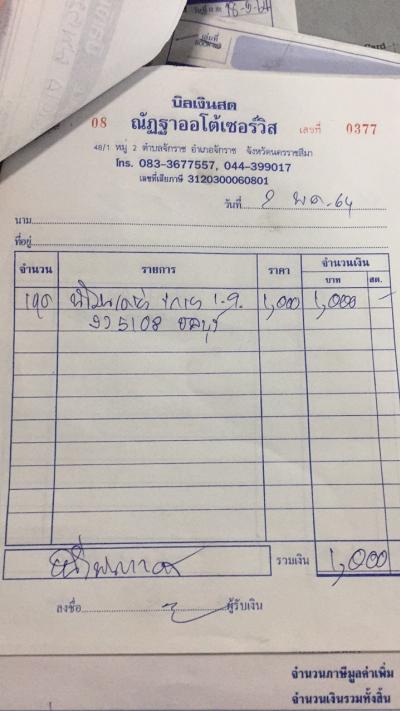 18-5-64
เล่มที่
BOOK NO.
บิลเงินสด
08 ณัฏฐาออโต้เซอร์วิส เลขที่ 0377
48/1 หมู่ 2 ตำบลจักราช อำเภอจักราช จังหวัดนครราชสีมา
โทร. 083-3677557, 044-399017
เลขที่เสียภาษี 3120300060801
วันที่ 9 พ.ค.64
นาม
ที่อยู่
จำนวน รายการ ราคา จำนวนเงิน
บาท สต.
1,000 1,000 -
5108 ชลบุรี
รวมเงิน 1,000
ลงชื่อ ผู้รับเงิน
จำนวนภาษีมูลค่าเพิ่ม
จำนวนเงินรวมทั้งสิ้น